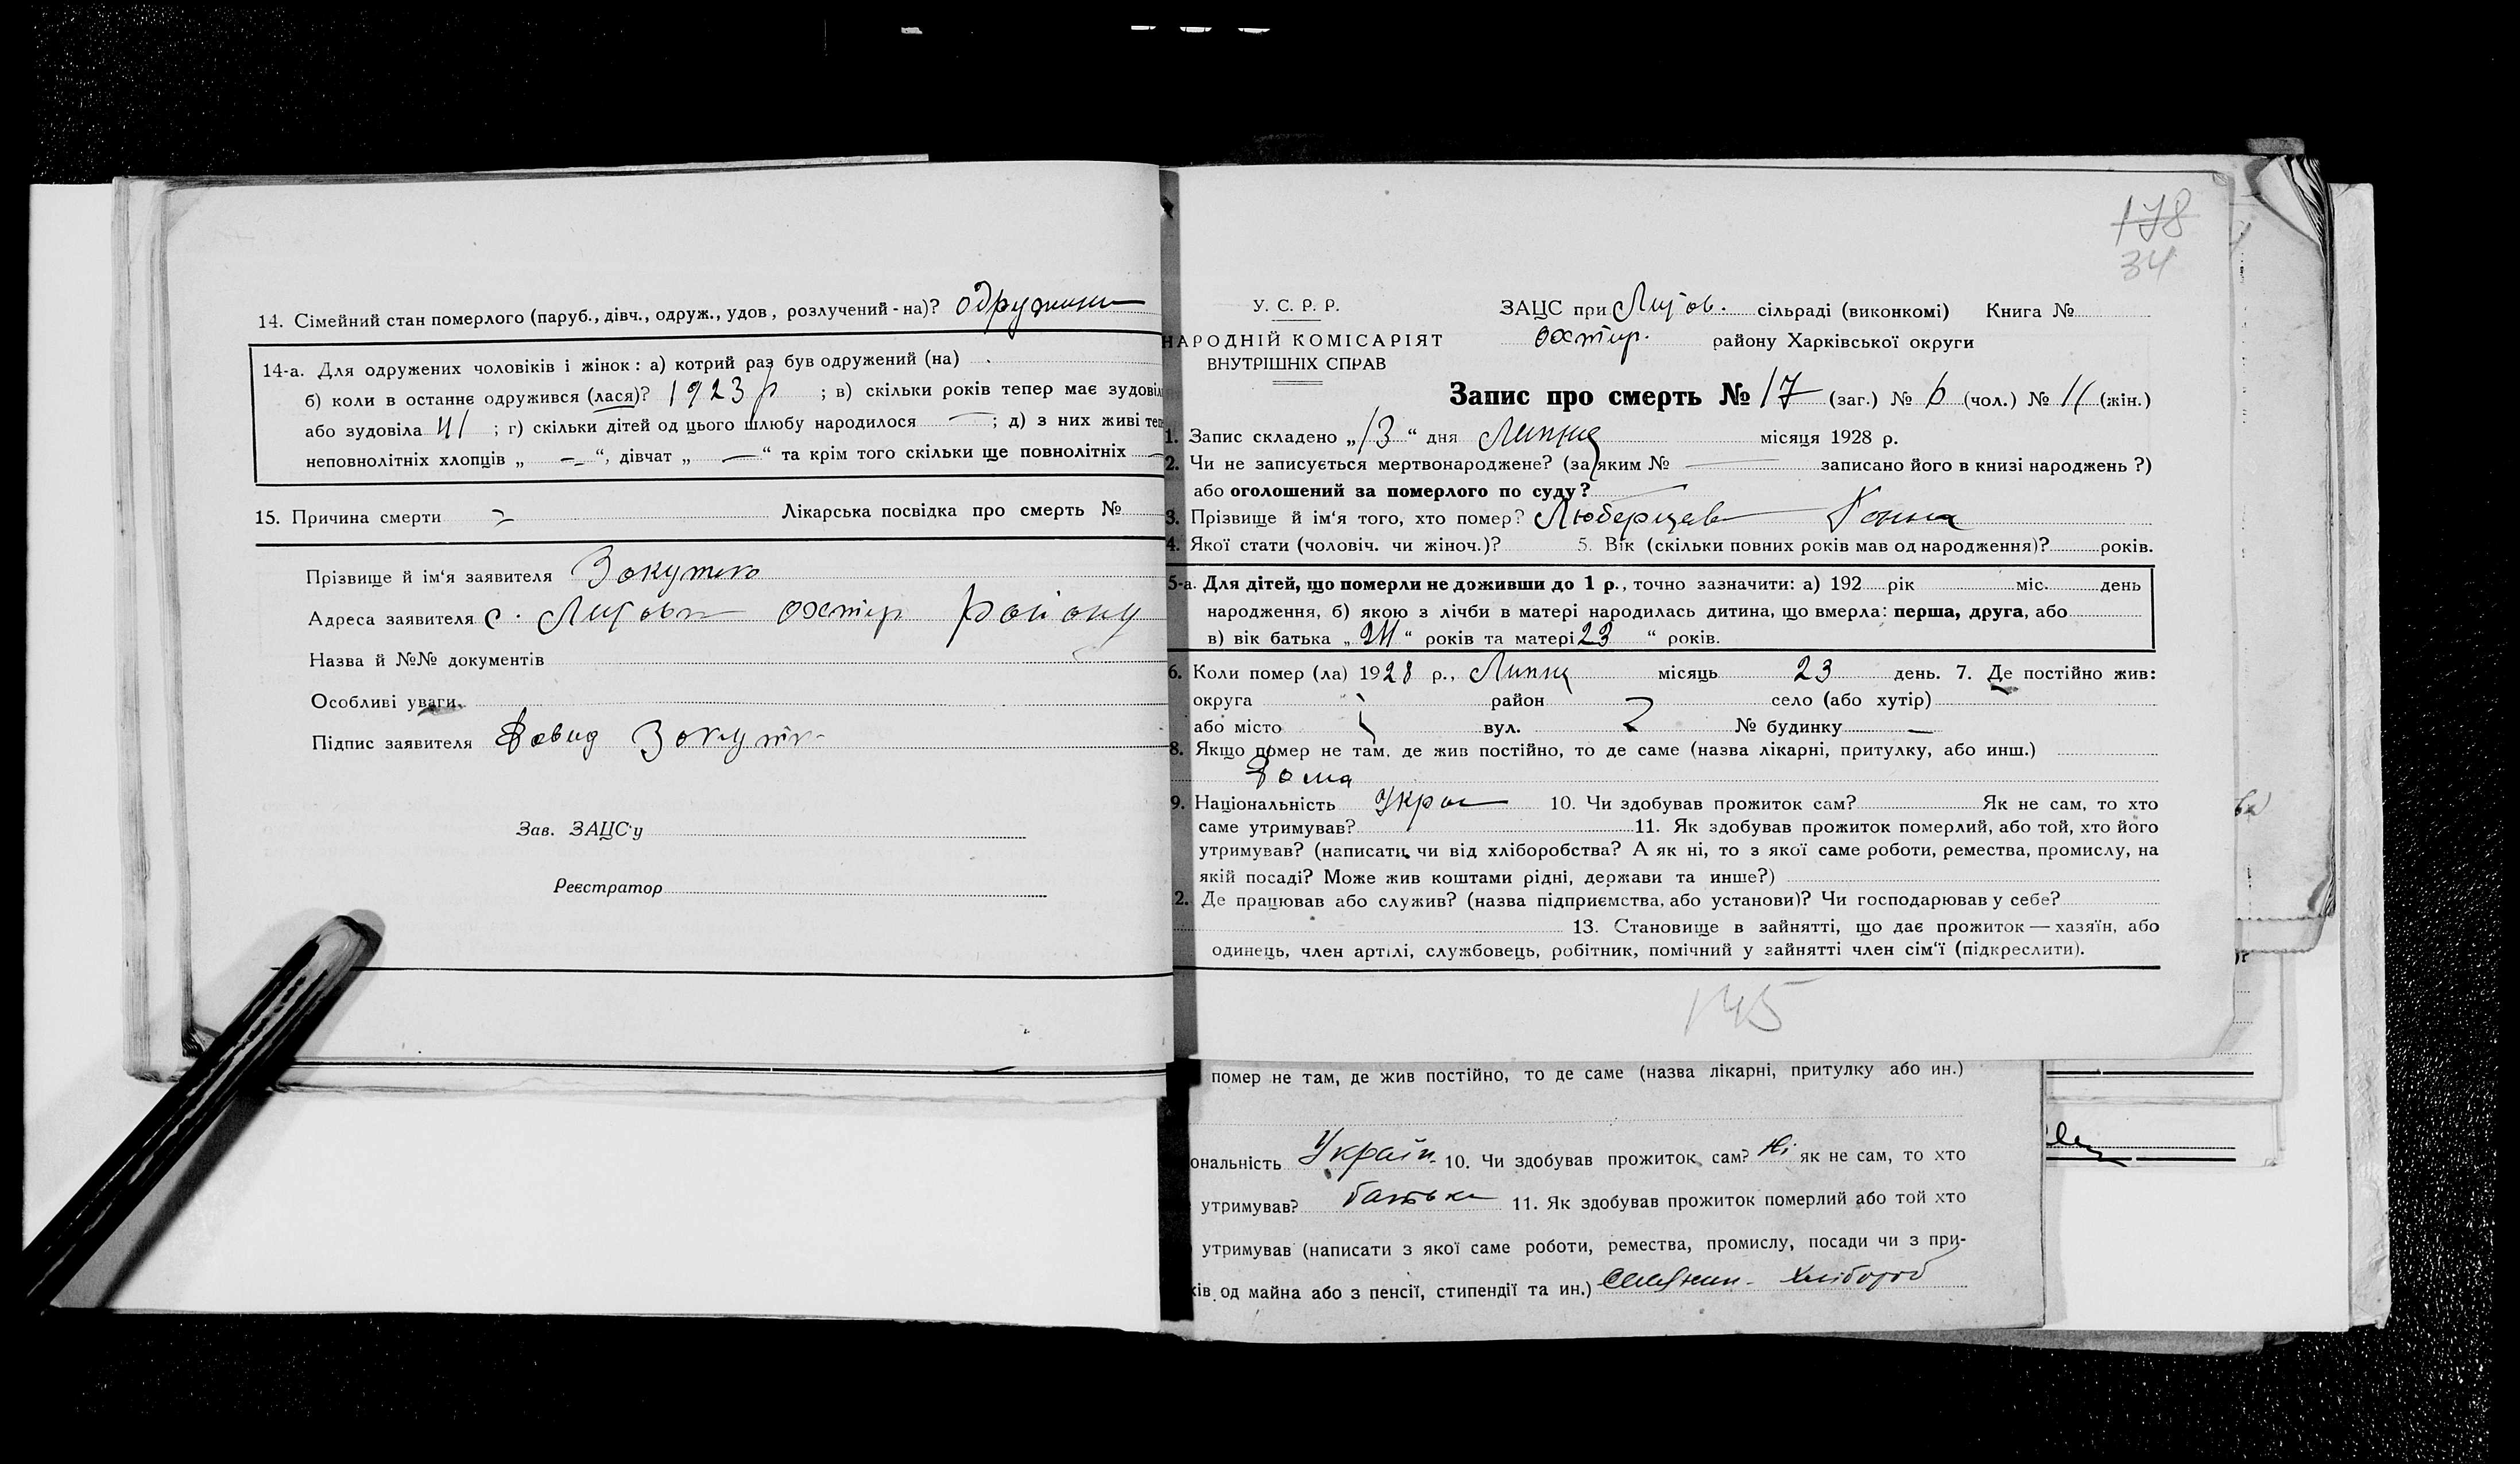 14. Сімейний стан померлого (паруб., дівч., одруж., удов, розлучений-на)? одружени
14-а. Для одружених чоловіків і жінок: а) котрий раз був одружений (на)
б) коли в останнє одружився (лася)? 1923 р ; в) скільки років тепер має зудовіл
або зудовіла 41 ; г) скільки дітей од цього шлюбу народилося — ; д) з них живі теп
неповнолітніх хлопців „ — “, дівчат „ — “ та крім того скільки ще повнолітніх —
15. Причина смерти Лікарська посвідка про смерть №
Прізвище й ім‘я заявителя Закутко
Адреса заявителя с. району
Назва й №№ документів
Особливі уваги
Підпис заявителя Давид
Зав. ЗАЦС‘у
Реєстратор
178
34
У. С. Р. Р.
НАРОДНІЙ КОМІСАРІЯТ
ВНУТРІШНІХ СПРАВ
ЗАЦС при сільраді (виконкомі) Книга №
Охтир. району Харківської округи
Запис про смерть № 17 (заг.) № 6 (чол.) № 11 (жін.)
1. Запис складено „13“ дня Липня місяця 1928 р.
2. Чи не записується мертвонароджене? (за яким № — записано його в книзі народжень ?)
або оголошений за померлого по суду? —
3. Прізвище й ім‘я того, хто помер? Люберцева
4. Якої стати (чоловіч. чи жіноч.)? 5. Вік (скільки повних років мав од народження)? років.
5-а. Для дітей, що померли не доживши до 1 р., точно зазначити: а) 192 рік міс. день
народження, б) якою з лічби в матері народилась дитина, що вмерла: перша, друга, або
в) вік батька „ 24 “ років та матері 23 “ років.
6. Коли помер (ла) 1928 р., Липня місяць 23 день. 7. Де постійно жив:
округа район село (або хутір)
або місто вул. № будинку —
8. Якщо помер не там, де жив постійно, то де саме (назва лікарні, притулку, або инш.)
Дома
9. Національність Укра 10. Чи здобував прожиток сам? Як не сам, то хто
саме утримував? 11. Як здобував прожиток померлий, або той, хто його
утримував? (написати, чи від хліборобства? А як ні, то з якої саме роботи, ремества, промислу, на
якій посаді? Може жив коштами рідні, держави та инше?)
2. Де працював або служив? (назва підприємства, або установи)? Чи господарював у себе?
13. Становище в зайнятті, що дає прожиток — хазяїн, або
одинець, член артілі, службовець, робітник, помічний у зайнятті член сім‘ї (підкреслити).
145
помер не там, де жив постійно, то де саме (назва лікарні, притулку або ин.)
ональність Україн. 10. Чи здобував прожиток сам? Ні як не сам, то хто
утримував? батько 11. Як здобував прожиток померлий або той хто
утримував (написати з якої саме роботи, ремества, промислу, посади чи з при-
ків од майна або з пенсії, стипендії та ин.) Селянин- Хлібороб